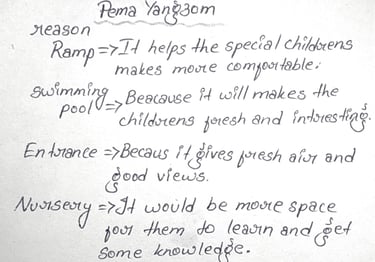 Pema Yangzom
reason
Ramp => It helps the special childrens
makes more comfortable.
swimming
pool => Beacause it will makes the
childrens fresh and intoresting.
Entrance => Becaus it gives fresh air and
good views.
Nursery => It would be more space
four them do learn and get
some knowledge.